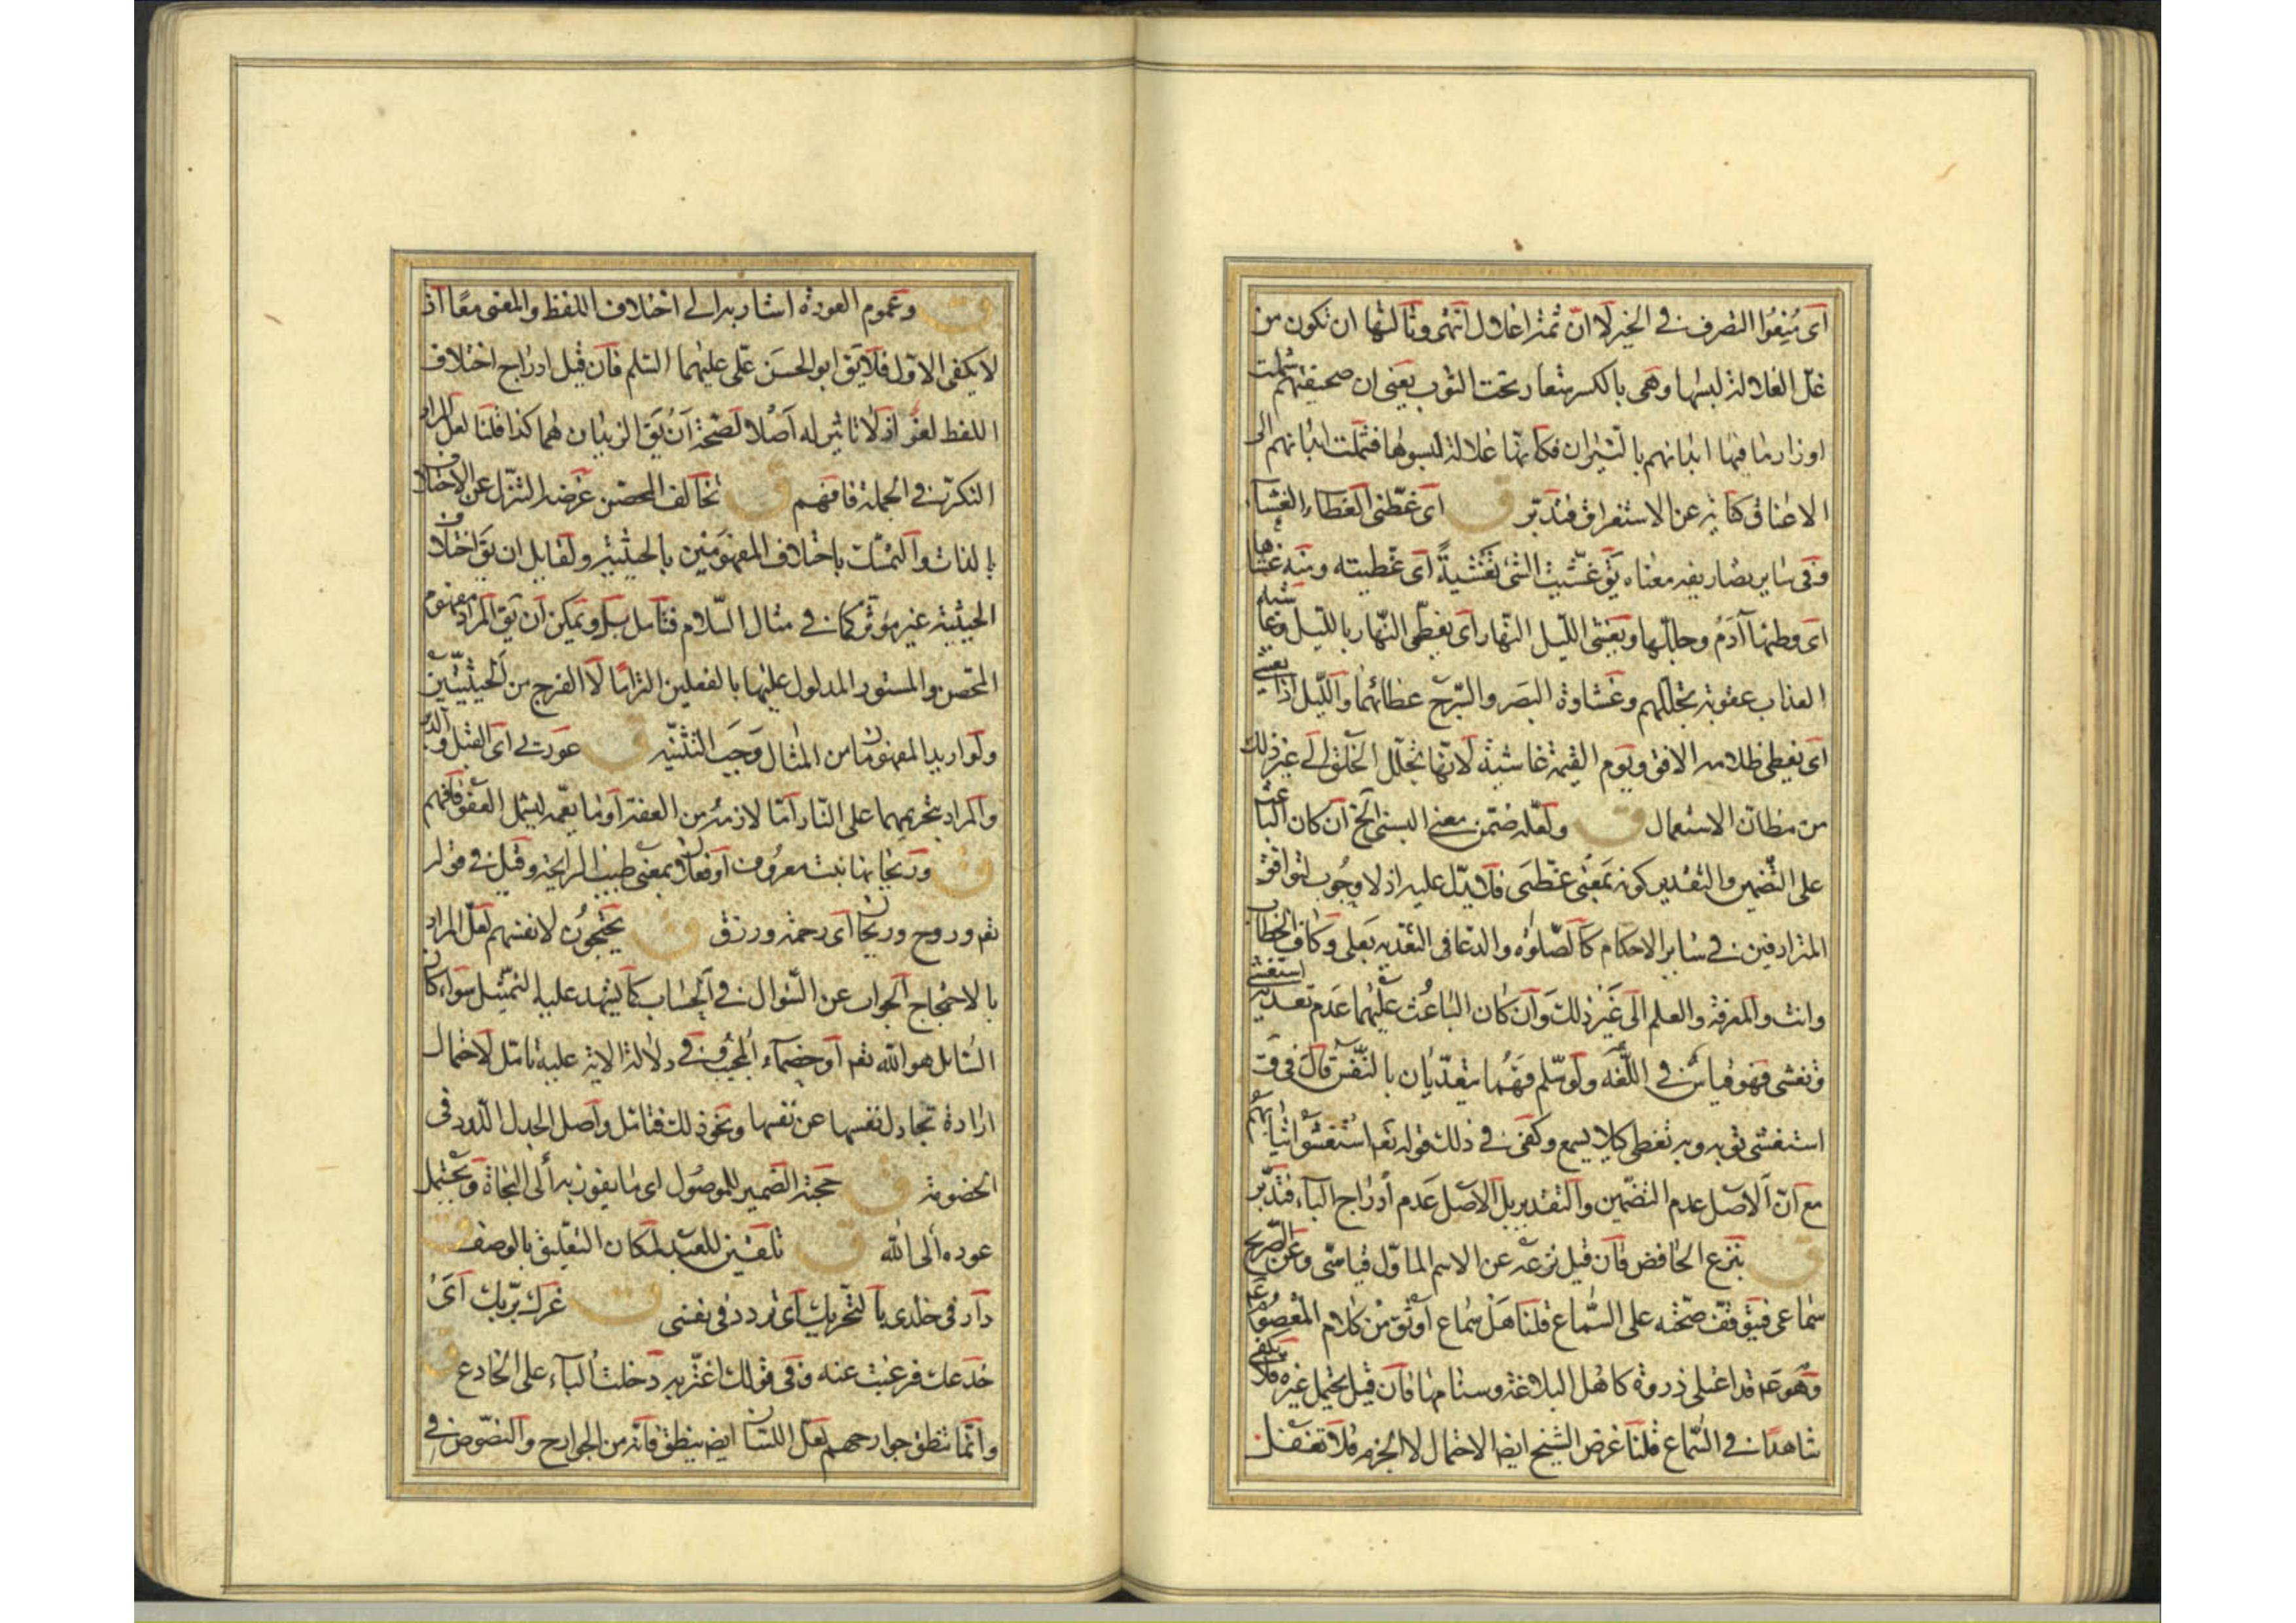 اى مُنِعُوا التصرف فى الخير لا انّ ثمّة اغلال انتهى وثالثها ان تكون من
غلّ الغلالة لبسها وهى بالكسر شعار تحت الثوب يعنى ان صحيفتهم شملت
اوزار ما فيها ابدانهم بالنيران فكانّها غلالة لبسوها فشملت ابدانهم الى
الاعناق كناية عن الاستغراق فتدبّر ق اى غطّنى الغطاء الغشاء
وفى ساير تصاريفه معناه يق غشّيت الشئ تغشيةً اى غطيته ومنه غشاها
اى وطئها آدم وجلّلها ويغشى الليل النّهار اى يغطّى النّهار بالليل وغاشية
العذاب عقوبة تجلّلهم وغشاوة البصر والسّرج غطائهما والليل اذا يغشى
اى يغطى ظلامه الافق ويوم القيمة غاشية لانّها تجلّل الخلق الى غير ذلك
من مظانّ الاستعمال ق ولعلّه ضمّن معنى البسنى الخ ان كان الباعث
على التّضمين والتقدير كونه بمعنى غطّنى فلا يدلّ عليه اذ لا وجوب لتوافق
المترادفين فى ساير الاحكام كالصّلوة والدّعا فى التعدّية بعلى وكاف الخطاب
وانت والمعرفة والعلم الى غير ذلك وان كان الباعث عليهما عدم تعدية استغشى
وتغشى فهو قياس فى اللّغة ولو سلّم فهما يتعدّيان بالنّفس قال فى ق
استغشى ثوبه وبه تغطى كيلا يسمع وكفى فى ذلك قوله تعم استغشوا ثيابهم
مع انّ الاصل عدم التضمين والتقدير بل الاصل عدم ادراج الباء فتدبّر
ق بنزع الخافض فان قيل نزعه عن الاسم الماوّل قياسىّ وعن الصّريح
سماعى فيتوقّف صحّته على السّماع قلنا هل سماع اوثق من كلام المعصوم عم
وهو عم قد اعتلى ذروة كاهل البلاغة وسنامها فان قيل يحتمل غيره فلا يكفى
شاهدًا فى السّماع قلنا غرض الشيخ ايضا الاحتمال لا الجزم فلا تغفل
ق وعموم العورة اشار به الى اختلاف اللفظ والمعنى معًا اذ
لا يكفى الاوّل فلا يق ابو الحسن علّى عليهما السّلم فان قيل ادراج اختلاف
اللفظ لغو اذ لا تاثير له اصلا لصحّة ان يق الزيدان هما كذا قلنا لعلّ المراد
التكرّر فى الجملة فافهم ق تخالف المحصن غرضه التنزّل عن الاختلاف
بالذات والتمسّك باختلاف المفهومين بالحيثية ولقايل ان يق اختلاف
الحيثية غير مؤثر كما فى مثال السّلام فتامل بل ويمكن ان يق المراد مفهوم
المحصن والمستور المدلول عليها بالفعلين التزامًا لا الفرج من الحيثيتين
ولو اريد المفهومان من المثال وجب التثنية ق عورتى اى القبل والدبر
والمراد بتحريمهما على النّار امّا لازمه من العفة او ما يعمّه ليشمل العفو فافهم
ق وريحانها نبت معروف او فعلان بمعنى طيب الرايحة وقيل فى قوله
تعم وروح وريحان اى رحمة ورزق ق يحتجّون لانفسهم لعلّ المراد
بالاحتجاج الجواب عن السّوال فى الحساب كما يشهد عليه التمثيل سواء كان
السّائل هو اللّه تعم او خصماء المجيب وفى دلالة الاية عليه تامّل لاحتمال
ارادة تجادل نفسها عن نفسها ونحو ذلك فتامّل واصل الجدل اللّدد فى
الخصومة ق حجته الضمير للموصول اى ما يفوز به الى النجاة ويحتمل
عوده الى اللّه ق تلقين للعبد لمكان التعليق بالوصف ق
دار فى خلدى بالتحريك اى تردد فى نفسى ق غرك بربك اىُ
خدعك فرغبت عنه وفى قولك اغترّ به دخلت الباء على الخادع ق
وانّما تنطق جوارحهم لعلّ اللسان ايضا ينطق فانّه من الجوارح والنصّوص فى